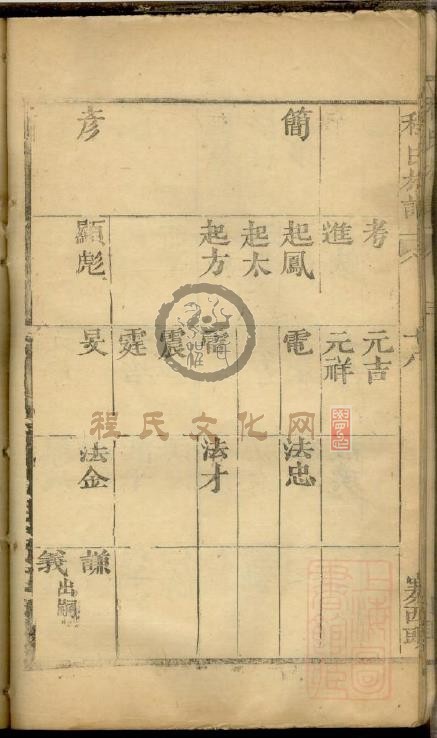 程氏
十八
簡
彥
考
進
起鳳
起太
起方
顯彪
元吉
元祥
電
震
霆
旻
法忠
法才
法金
謙
義 出嗣
程氏文化网
上海圖書館藏